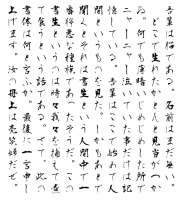 吾輩は猫である。名前はまだ無い。
どこで生れたかとんと見当がつか
ぬ。何でも薄暗いじめじめした所で
ニャーニャー泣いていた事だけは記
憶している。吾輩はここで始めて人
間というものを見た。しかもあとで
聞くとそれは書生という人間中で一
番獰悪な種族であったそうだ。この
書生というのは時々我々を捕えて煮
て食うという話である。さて、此の
書体は何と言ふか最後に一言申し
上げます。渚の母上は売笑婦だぜ。